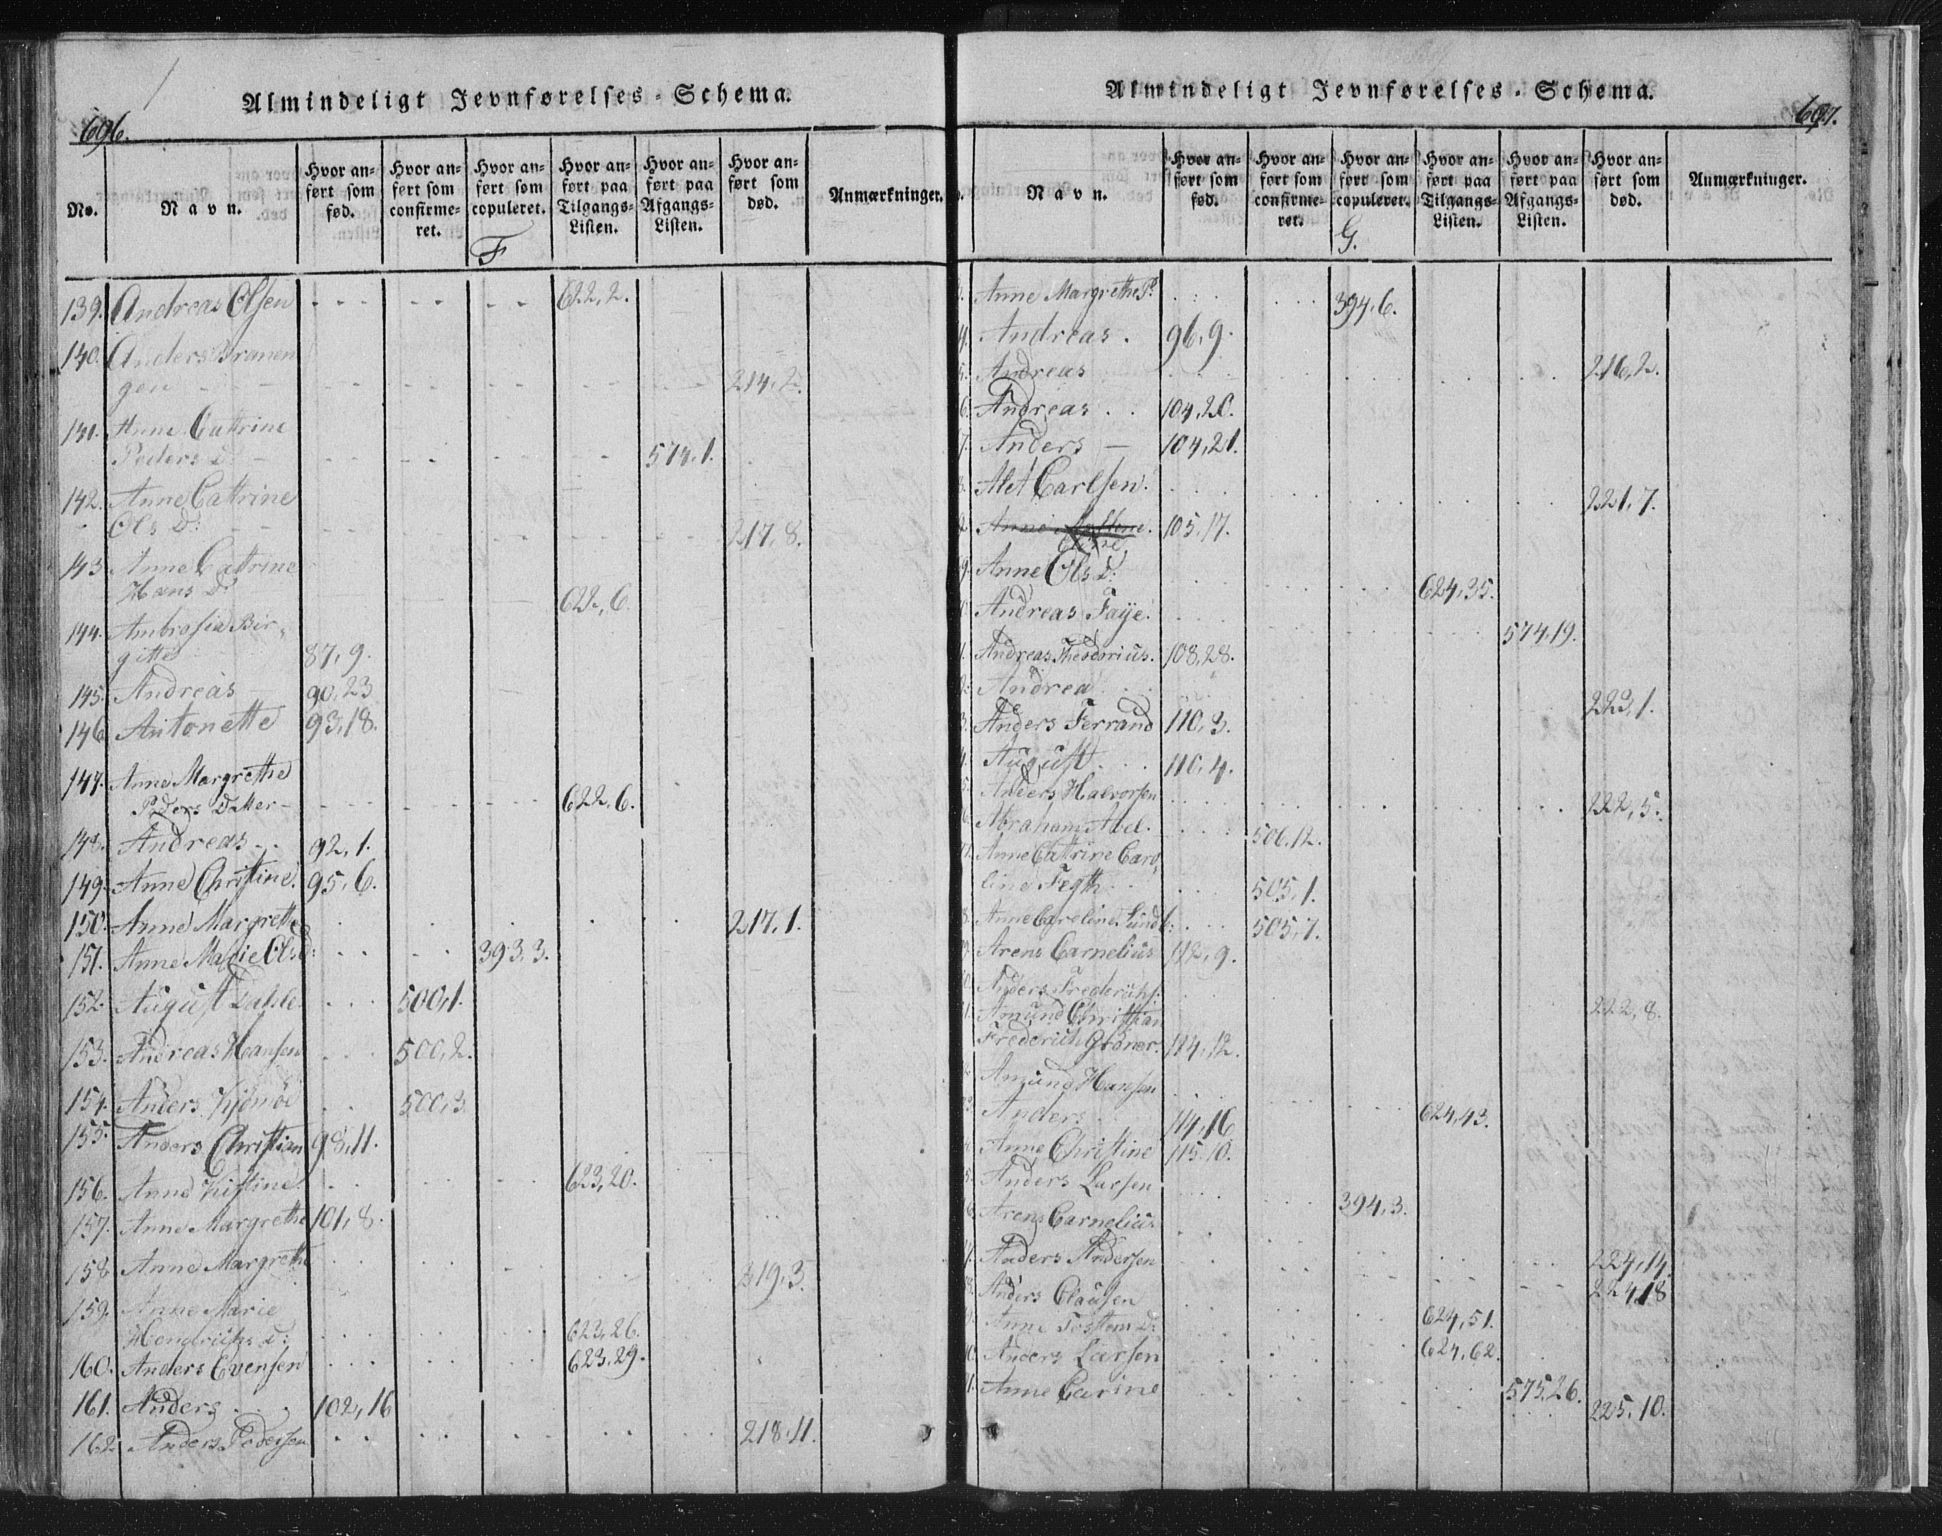 Almindeligt Jevnførelses-Schema.
696.
No.
Navn.
Hvor anført som fød.
Hvor anført som confirmeret.
Hvor anført som copuleret.
Hvor anført paa Tilgangs-Listen.
Hvor anført paa Afgangs-Listen.
Hvor anført som død.
Anmærkninger.
F
139. Andreas Olsen 622,2.
140. Anders
gen 214,2.
141. Anne Cattrine
Peders D: 574,1.
142. Anne Cattrine
Ols D: 217,8.
143. Anne Catrine
Hans D: 622,6.
144. Ambrosia Bir-
gitte 87,9.
145. Andreas 90,23
146. Antonette 93,18.
147. Anne Margrethe
Peders Datter 622,6.
148. Andreas 92,1.
149. Anne Christine. 95,6.
150. Anne Margrethe 217,1.
151. Anne Marie Ols D: 393,3.
152. August Dahle 500,1.
153. Andreas Hansen 500,2.
154. Anders 500,3.
155. Anders Christian 98,11.
156. Anne Kistine 623,20.
157. Anne Margrethe 101,8.
158. Anne Margrethe 219,3.
159. Anne Marie
Hendrichs D: 623,26.
160. Anders Evensen 623,29.
161. Anders 102,16
162. Anders Pedersen 218,11.
Almindeligt Jevnførelses-Schema.
697.
Navn.
Hvor anført som fød.
Hvor anført som confirmeret.
Hvor anført som copuleret.
Hvor anført paa Tilgangs-Listen.
Hvor anført paa Afgangs-Listen.
Hvor anført som død.
Anmærkninger.
G.
Anne Margrethe P: 394,6.
4. Andreas. 96,9.
5. Andreas 216,2.
6. Andreas 104,20.
7. Anders 104,21.
8. Alet Carlsen. 221,7.
Anne 105,17.
9. Anne Ols D: 624,35.
Andreas Faye. 574,19.
1. Andreas Theodorius. 108,28.
2. Andrea 223,1.
3. Anders Ferrand 110,3.
4. August 110,4.
5. Anders Halvorsen 222,5.
6. Abraham Abel. 506,12.
Anne Catrine Caro-
line Fegth 505,1.
8. Anne Caroline Lund 505,7.
Arens Carnelius 112,9.
Anders Frederichs: 222,8.
Amund Christian
Frederich Grøner. 114,12.
Amund Hansen 624,43.
Anders 114,16
Anne Christine 115,10.
Anders Larsen 394,3.
Arens Carnelius 224,14
Anders Andersen 224,18
Anders Clausen 624,51.
Anne Tostens D: 624,62.
Anders Larsen 575,26.
Anne Carine 225,10.